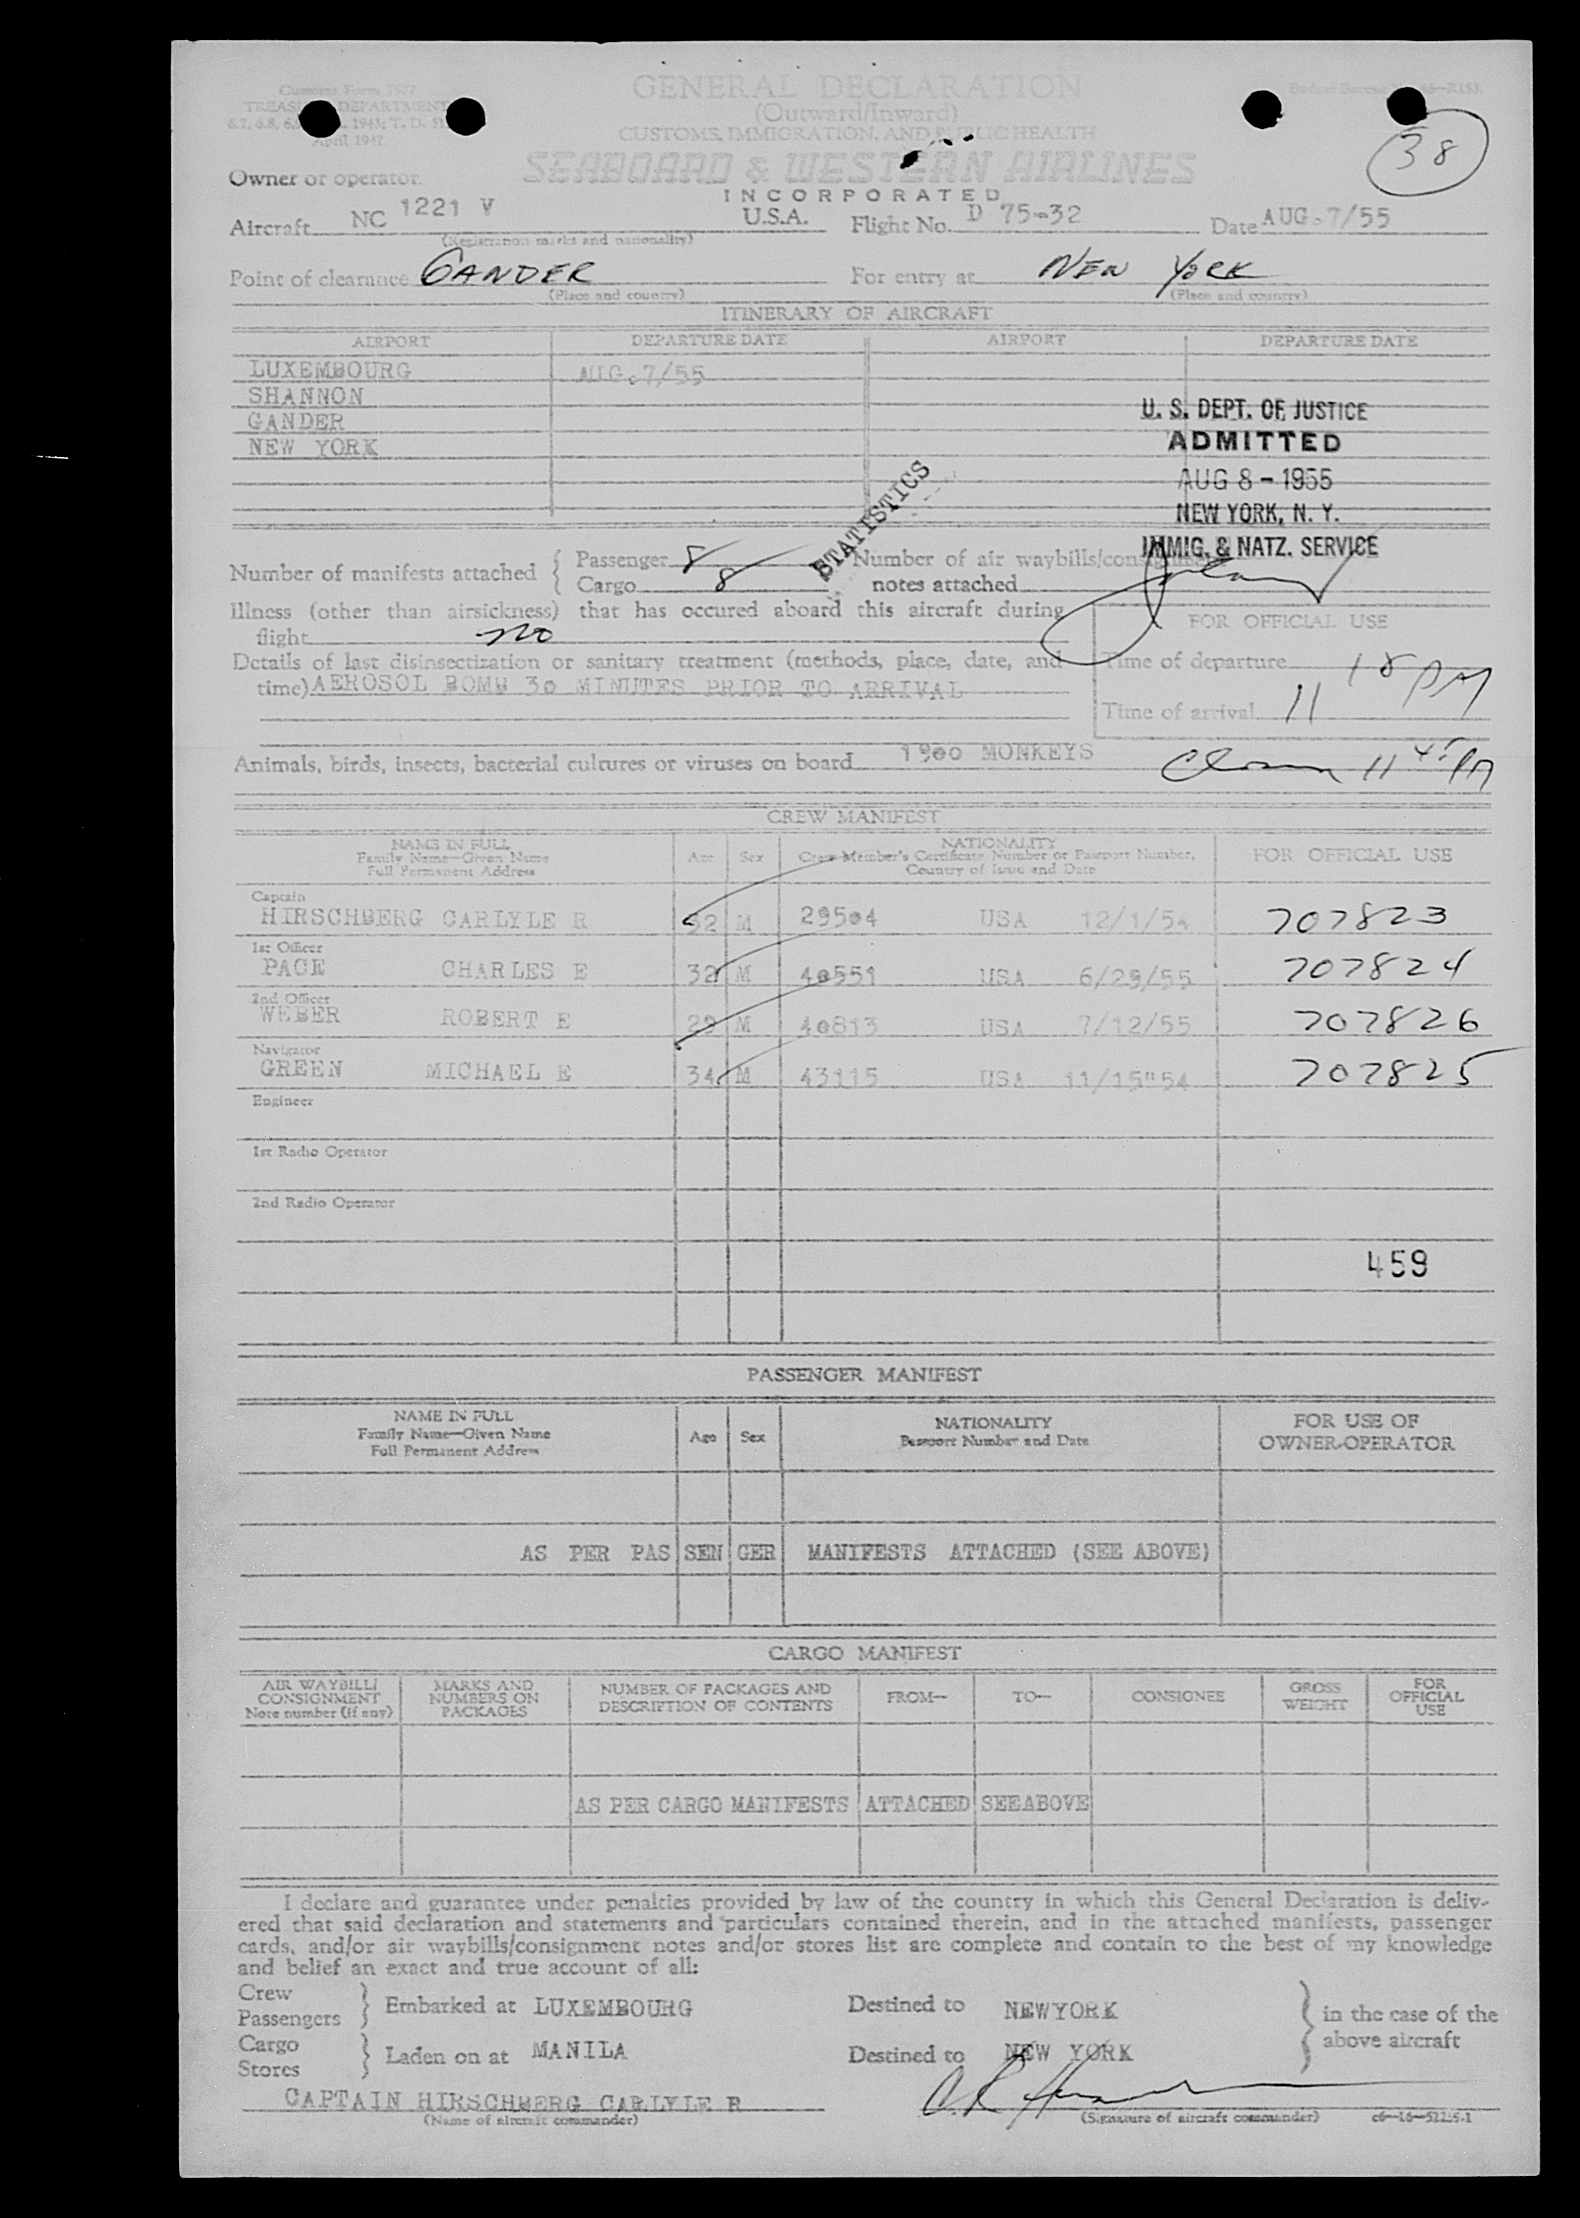 Customs Form 7507
TREASURY DEPARTMENT
April 1947
GENERAL DECLARATION
(Outward/Inward)
CUSTOMS, IMMIGRATION, AND PUBLIC HEALTH
38
SEABOARD & WESTERN AIRLINES
INCORPORATED
Owner or operator
Aircraft NC 1221 V U.S.A. Flight No. D 75-32 Date AUG. 7/55
(Registration marks and nationality)
Point of clearance GANDER For entry at NEW YORK
(Place and country) (Place and country)
ITINERARY OF AIRCRAFT
AIRPORT DEPARTURE DATE AIRPORT DEPARTURE DATE
LUXEMBOURG AUG. 7/55
SHANNON
GANDER
NEW YORK
U. S. DEPT. OF JUSTICE
ADMITTED
AUG 8 - 1955
NEW YORK, N. Y.
IMMIG. & NATZ. SERVICE
STATISTICS
Number of manifests attached { Passenger 8
Cargo 8
Number of air waybills/consignment
notes attached
Illness (other than airsickness) that has occured aboard this aircraft during
flight no
FOR OFFICIAL USE
Details of last disinsectization or sanitary treatment (methods, place, date, and
time) AEROSOL BOMB 30 MINUTES PRIOR TO ARRIVAL
Time of departure
Time of arrival 11 18 PM
Animals, birds, insects, bacterial cultures or viruses on board 1900 MONKEYS
11 45 PM
CREW MANIFEST
NAME IN FULL
Family Name—Given Name
Full Permanent Address
Age Sex
NATIONALITY
Crew Member's Certificate Number or Passport Number,
Country of Issue and Date
FOR OFFICIAL USE
Captain
HIRSCHBERG CARLYLE R 32 M 29504 USA 12/1/54 707823
1st Officer
PACE CHARLES E 32 M 40551 USA 6/29/55 707824
2nd Officer
WEBER ROBERT E 29 M 40813 USA 7/12/55 707826
Navigator
GREEN MICHAEL E 34 M 43115 USA 11/15"54 707825
Engineer
1st Radio Operator
2nd Radio Operator
459
PASSENGER MANIFEST
NAME IN FULL
Family Name—Given Name
Full Permanent Address
Age Sex
NATIONALITY
Passport Number and Date
FOR USE OF
OWNER-OPERATOR
AS PER PAS SEN GER MANIFESTS ATTACHED (SEE ABOVE)
CARGO MANIFEST
AIR WAYBILL/
CONSIGNMENT
Note number (if any)
MARKS AND
NUMBERS ON
PACKAGES
NUMBER OF PACKAGES AND
DESCRIPTION OF CONTENTS
FROM— TO— CONSIGNEE
GROSS
WEIGHT
FOR
OFFICIAL
USE
AS PER CARGO MANIFESTS ATTACHED SEEABOVE
I declare and guarantee under penalties provided by law of the country in which this General Declaration is deliv-
ered that said declaration and statements and particulars contained therein, and in the attached manifests, passenger
cards, and/or air waybills/consignment notes and/or stores list are complete and contain to the best of my knowledge
and belief an exact and true account of all:
Crew
Passengers } Embarked at LUXEMBOURG Destined to NEWYORK
Cargo
Stores } Laden on at MANILA Destined to NEW YORK
} in the case of the
above aircraft
CAPTAIN HIRSCHBERG CARLYLE R
(Name of aircraft commander) (Signature of aircraft commander)